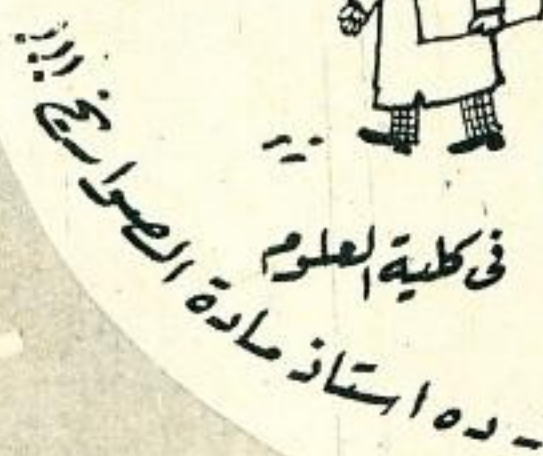 فى كلية العلوم
- ده استاذ مادة الصواريخ !!!